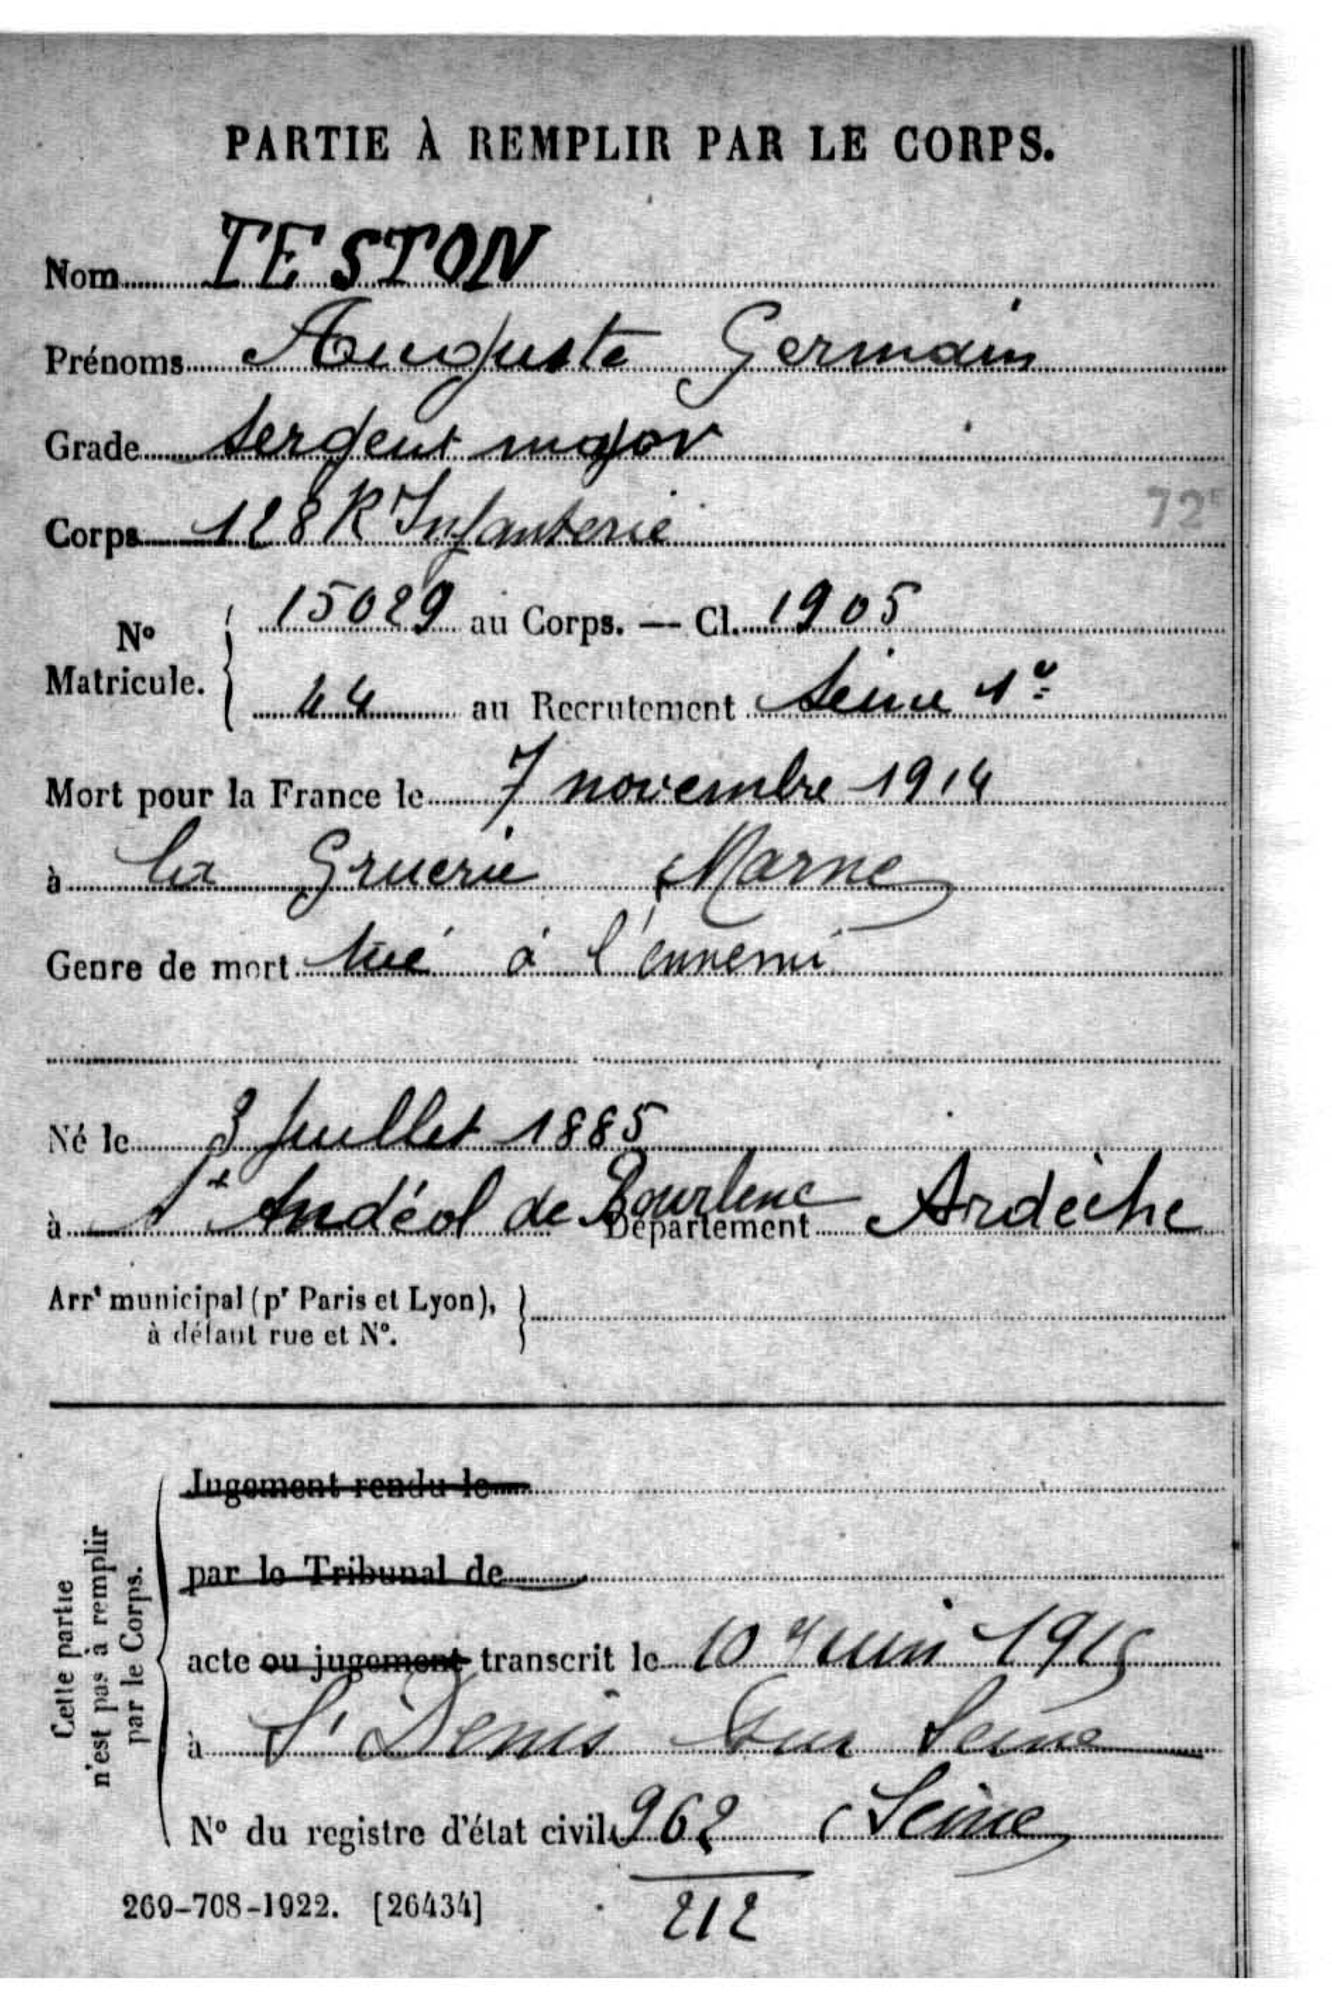 PARTIE À REMPLIR PAR LE CORPS.
Nom TESTON
Prénoms Auguste Germain
Grade sergent major
Corps 128 R Infanterie 72e
N° Matricule. { 15029 au Corps. — Cl. 1905
44 au Recrutement Seine 1er
Mort pour la France le 7 novembre 1914
à la Gruerie (Marne
Genre de mort tué à l'ennemi
Né le 3 Juillet 1885
à St Andéol de Bourlenc Département Ardèche
Arrt municipal (pr Paris et Lyon), }
à défaut rue et N°.
Cette partie n'est pas à remplir par le Corps.
Jugement rendu le
par le Tribunal de
acte ou jugement transcrit le 10 Juin 1915
à St Denis sur Seine
N° du registre d'état civil 962 (Seine
212
269-708-1922. [26434]